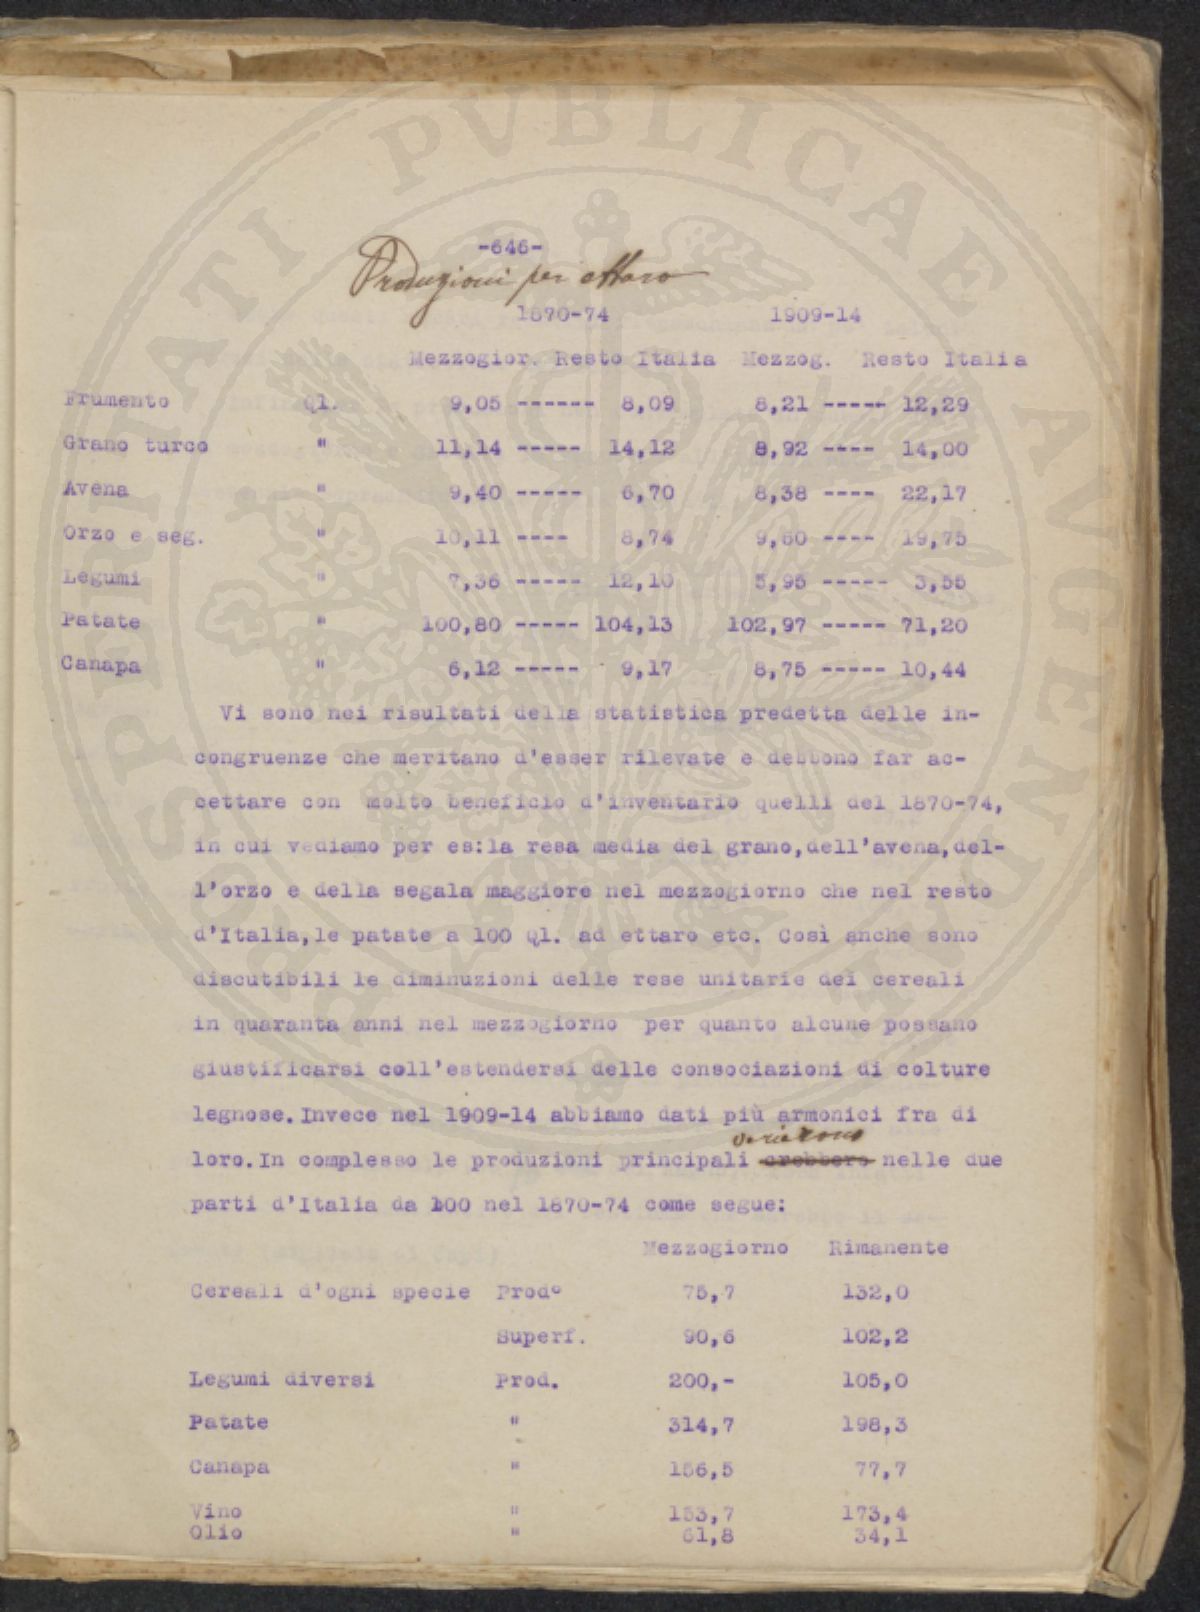 -646-
Produzioni per ettaro
1870-74 1909-14
Mezzogior. Resto Italia Mezzog. Resto Italia
Frumento Ql. 9,05 ------ 8,09 8,21 ----- 12,29
Grano turco " 11,14 ----- 14,12 8,92 ---- 14,00
Avena " 9,40 ----- 6,70 8,38 ---- 22,17
Orzo e seg. " 10,11 ---- 8,74 9,60 ---- 19,75
Legumi " 7,36 ----- 12,10 5,95 ----- 3,55
Patate " 100,80 ----- 104,13 102,97 ----- 71,20
Canapa " 6,12 ----- 9,17 8,75 ----- 10,44
Vi sono nei risultati della statistica predetta delle in-
congruenze che meritano d'esser rilevate e debbono far ac-
cettare con molto beneficio d'inventario quelli del 1870-74,
in cui vediamo per es:la resa media del grano,dell'avena,del-
l'orzo e della segala maggiore nel mezzogiorno che nel resto
d'Italia,le patate a 100 Ql. ad ettaro etc. Così anche sono
discutibili le diminuzioni delle rese unitarie dei cereali
in quaranta anni nel mezzogiorno per quanto alcune possano
giustificarsi coll'estendersi delle consociazioni di colture
legnose.Invece nel 1909-14 abbiamo dati più armonici fra di
variarono
loro.In complesso le produzioni principali crebbero nelle due
parti d'Italia da 100 nel 1870-74 come segue:
Mezzogiorno Rimanente
Cereali d'ogni specie Prod° 75,7 132,0
Superf. 90,6 102,2
Legumi diversi Prod. 200,- 105,0
Patate " 314,7 198,3
Canapa " 156,5 77,7
Vino " 153,7 173,4
Olio " 61,8 34,1
PROSPERITATI PVBLICAE AVGENDAE